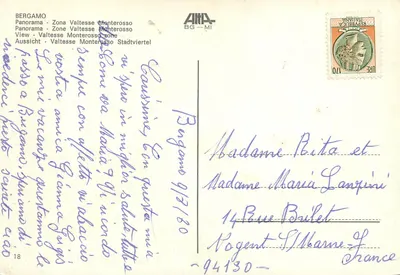 BERGAMO
Panorama - Zona Valtesse Monterosso
Panorama - Zone Valtesse Monterosso
View - Valtesse Monterosso zone
Aussicht - Valtesse Monterosso Stadtviertel
BG - MI
Bergamo 9/7/80
Carissime, Con questa mia
vi spero in miglior salute tutte e
Come va Maria? Vi ricordo
sempre con affetto vi abracio
vostra amica Gianna
Le mie vacanze quest'anno le
passo a Bergamo speriamo di
rivederci presto saluti ciao
Madame Rita et
Madame Maria Lanzini
14 Rue Brilet
Nogent S/Marne
-94130- France
18